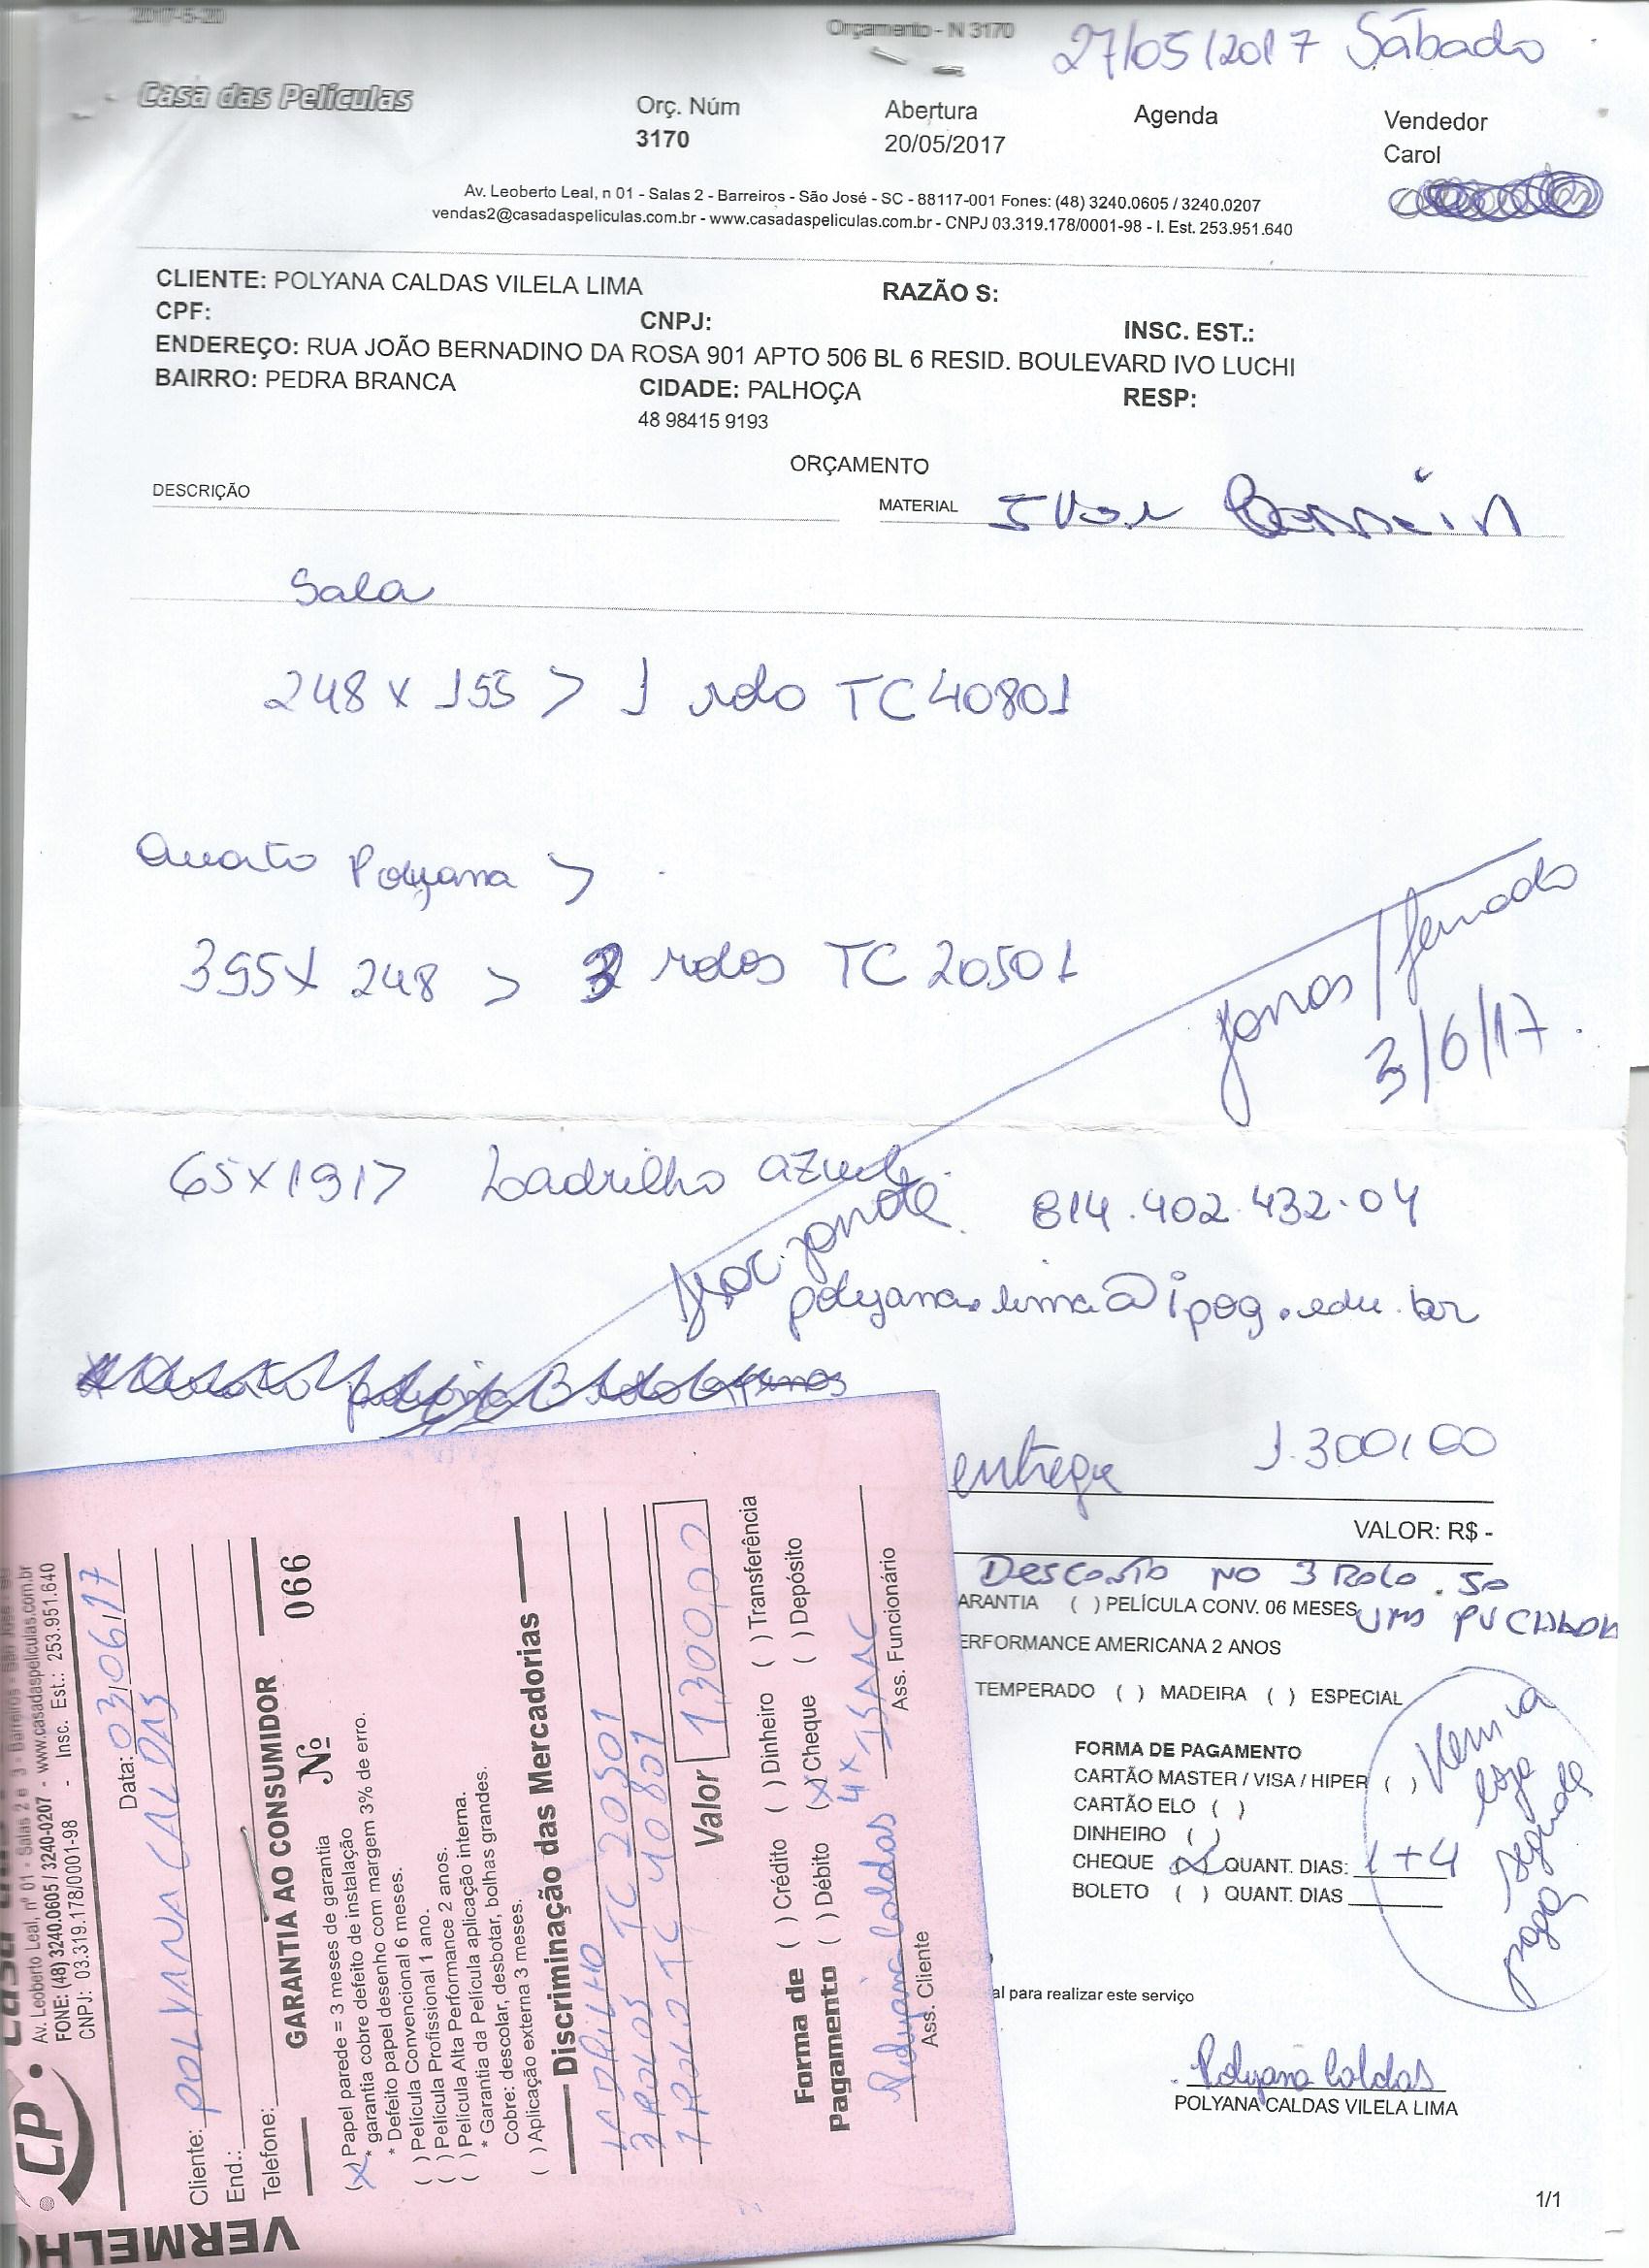 2017-5-20
Orçamento - N 3170
27/05/2017 Sábado
Casa das Películas
Orç. Núm
3170
Abertura
20/05/2017
Agenda
Vendedor
Carol
Av. Leoberto Leal, n 01 - Salas 2 - Barreiros - São José - SC - 88117-001 Fones: (48) 3240.0605 / 3240.0207
vendas2@casadaspeliculas.com.br - www.casadaspeliculas.com.br - CNPJ 03.319.178/0001-98 - I. Est. 253.951.640
CLIENTE: POLYANA CALDAS VILELA LIMA
RAZÃO S:
CPF:
CNPJ:
INSC. EST.:
ENDEREÇO: RUA JOÃO BERNADINO DA ROSA 901 APTO 506 BL 6 RESID. BOULEVARD IVO LUCHI
BAIRRO: PEDRA BRANCA
CIDADE: PALHOÇA
RESP:
48 98415 9193
ORÇAMENTO
DESCRIÇÃO
MATERIAL
Sala
248 x 155 > 1 rolo TC 40801
Quarto Polyana >
395 x 248 > 3 rolos TC 20501
Jonas /
3/6/17.
65x191> Ladrilho azul
814.402.432-04
polyana.lima@ipog.edu.br
entrega 1.300,00
VALOR: R$ -
Desconto no 3 rolo. 50
ARANTIA ( ) PELÍCULA CONV. 06 MESES
ERFORMANCE AMERICANA 2 ANOS
TEMPERADO ( ) MADEIRA ( ) ESPECIAL
FORMA DE PAGAMENTO
CARTÃO MASTER / VISA / HIPER ( )
CARTÃO ELO ( )
DINHEIRO ( )
CHEQUE (x) QUANT. DIAS: 1+4
BOLETO ( ) QUANT. DIAS
Vem na
loja
segunda
pagar
al para realizar este serviço
Polyana Caldas
POLYANA CALDAS VILELA LIMA
1/1
CP
Av. Leoberto Leal, nº 01 - Salas 2 e 3 - Barreiros - São José - SC
FONE: (48) 3240.0605 / 3240-0207 - www.casadaspeliculas.com.br
CNPJ: 03.319.178/0001-98 - Insc. Est.: 253.951.640
Data: 03/06/17
Cliente: POLYANA CALDAS
End.:
Telefone:
GARANTIA AO CONSUMIDOR
Nº 066
(x) Papel parede = 3 meses de garantia
* garantia cobre defeito de instalação
* Defeito papel desenho com margem 3% de ero.
( ) Película Convencional 6 meses.
( ) Película Profissional 1 ano.
( ) Película Alta Performance 2 anos.
* Garantia da Película aplicação interna.
Cobre: descolar, desbotar, bolhas grandes.
( ) Aplicação externa 3 meses.
Discriminação das Mercadorias
LADRILHO
3 ROLOS TC 20501
1 ROLO TC 40801
Valor 1.300,00
Forma de Pagamento
( ) Crédito ( ) Dinheiro ( ) Transferência
( ) Débito (x) Cheque ( ) Depósito
4x
Polyana Caldas ISAAC
Ass. Cliente
Ass. Funcionário
VERMELHO